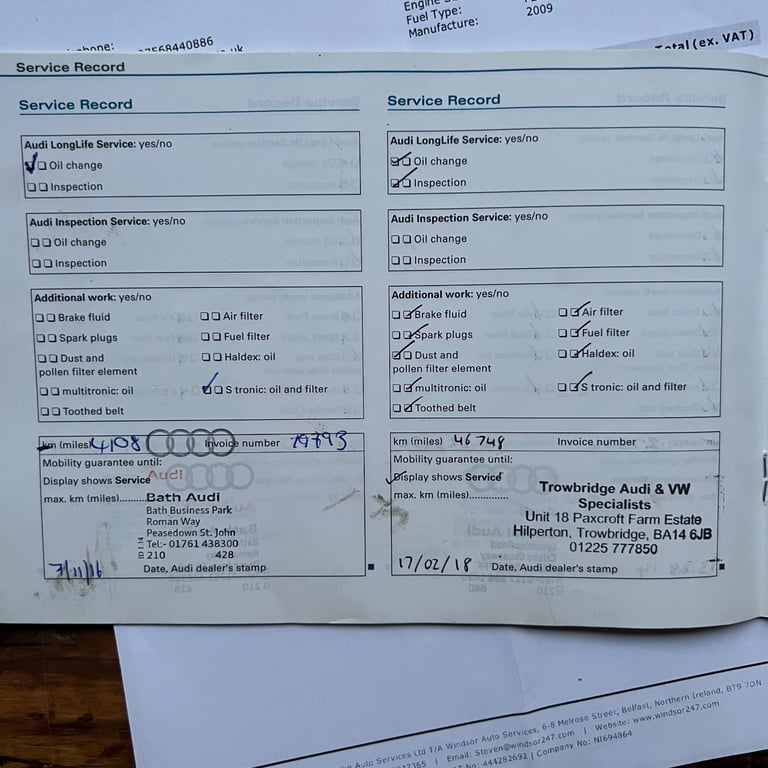 Engine
Fuel Type:
Manufacture:
2009
phone:
7568440886
.uk
Total (ex. VAT)
Service Record
Service Record
Audi LongLife Service: yes/no
Oil change
Inspection
Audi Inspection Service: yes/no
Oil change
Inspection
Additional work: yes/no
Brake fluid
Air filter
Spark plugs
Fuel filter
Dust and
pollen filter element
Haldex: oil
multitronic: oil
S tronic: oil and filter
Toothed belt
km (miles) 4108
Invoice number 79793
Mobility guarantee until:
Display shows Service
Audi
max. km (miles)
Bath Audi
Bath Business Park
Roman Way
Peasedown St. John
Tel:- 01761 438300
210 428
7/11/16
Date, Audi dealer's stamp
Service Record
Audi LongLife Service: yes/no
Oil change
Inspection
Audi Inspection Service: yes/no
Oil change
Inspection
Additional work: yes/no
Brake fluid
Air filter
Spark plugs
Fuel filter
Dust and
pollen filter element
Haldex: oil
multitronic: oil
S tronic: oil and filter
Toothed belt
km (miles) 46748
Invoice number
Mobility guarantee until:
Display shows Service
max. km (miles)
Trowbridge Audi & VW
Specialists
Unit 18 Paxcroft Farm Estate
Hilperton, Trowbridge, BA14 6JB
01225 777850
17/02/18
Date, Audi dealer's stamp
Auto Services Ltd T/A Windsor Auto Services, 6-8 Melrose Street, Belfast, Northern Ireland, BT9 7DN
7365 | Email: Steven@windsor247.com | Website: www.windsor247.com
No: 444282692 | Company No: NI694864